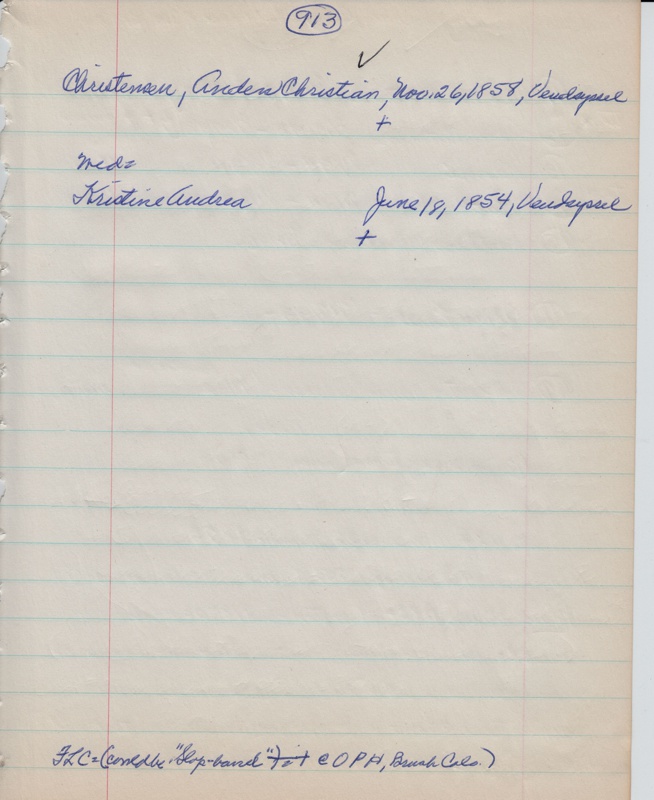 913
✓
Christensen, Anders Christian, Nov. 26, 1858, Vendsyssel
+
med=
Kristine Andrea June 18, 1854, Vendsyssel
+
FLC=(could be " " @ OPH, Brush Colo.)